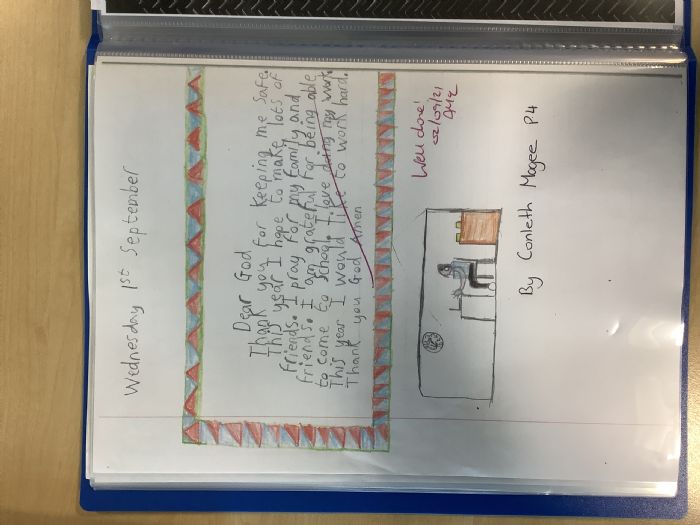 Wednesday 1st September
Dear God
Thank you for keeping me safe.
This year I hope to make lots of
friends. I pray for my family and
friends. I am grateful for being able
to come to school. I love doing my work.
This year I would like to work hard.
Thank you God Amen
Well done!
02/09/21
By Conleth Magee P4